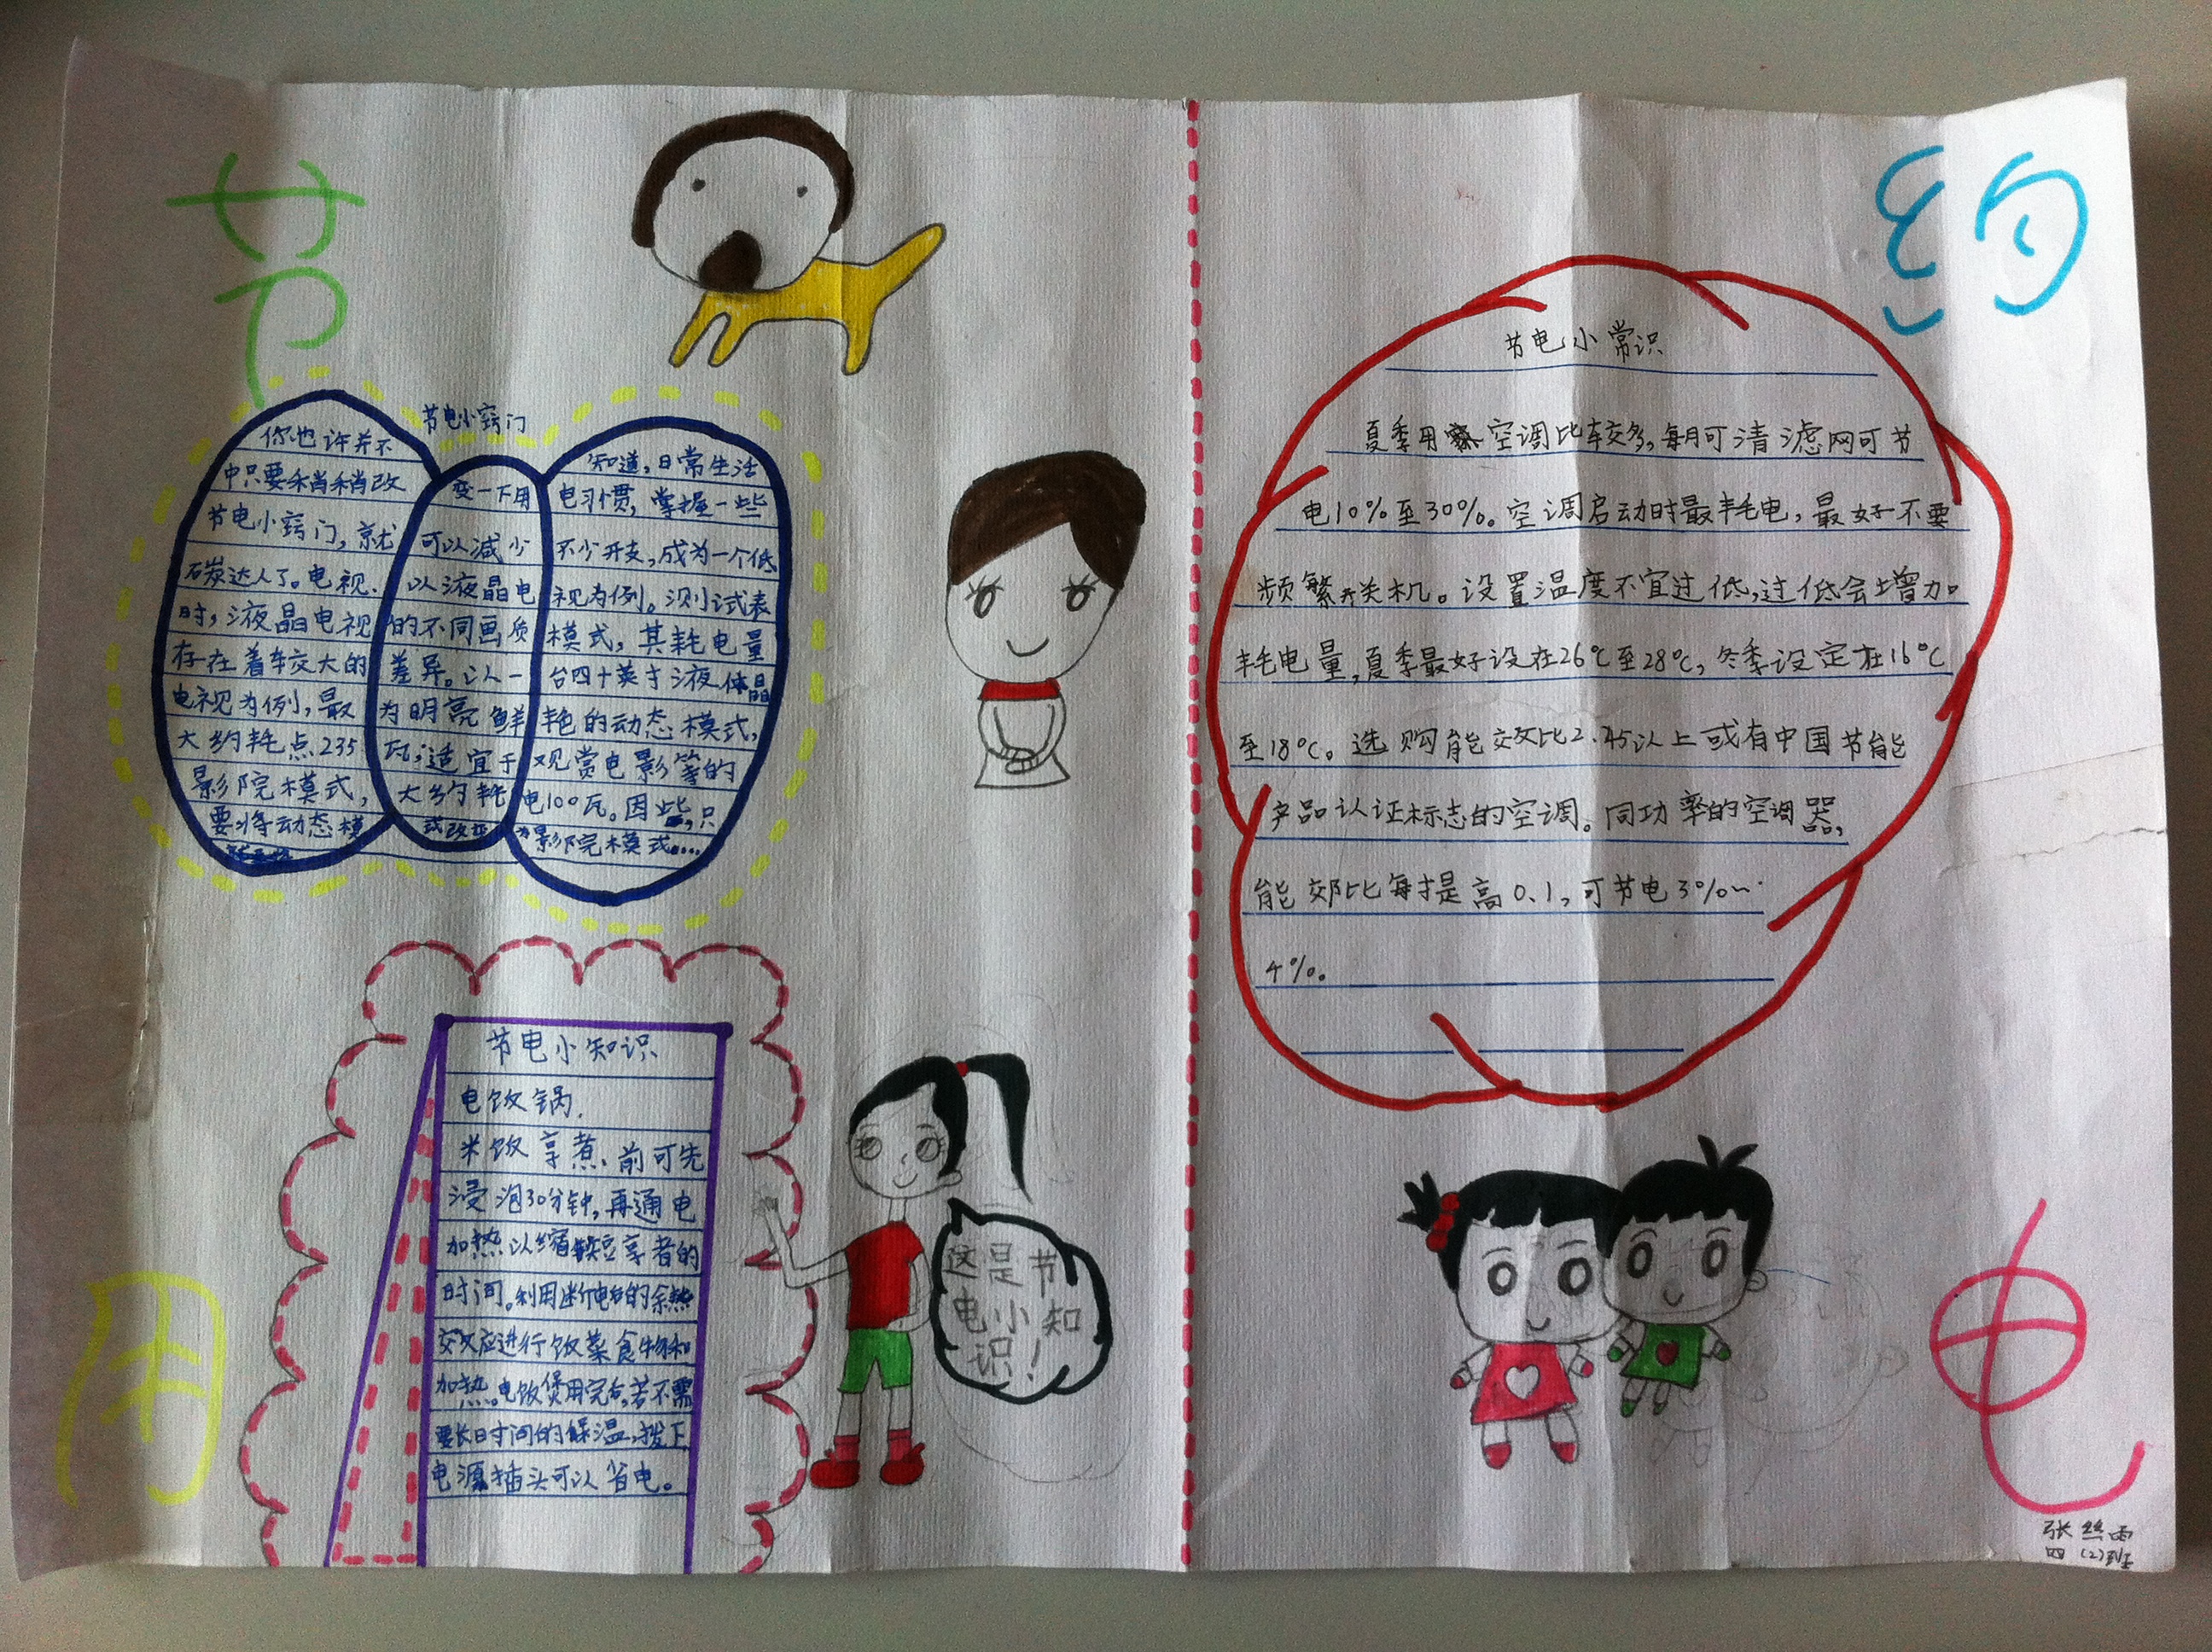 节约
用电
节电小窍门
你也许并不知道,日常生活
中只要稍稍改变一下用电习惯,掌握一些
节电小窍门,就可以减少不少开支,成为一个低
碳达人了。电视.以液晶电视为例。测试表
时,液晶电视的不同画质模式,其耗电量
存在着较大的差异。以一台四十英寸液晶
电视为例,最为明亮鲜艳的动态模式,
大约耗点235瓦;适宜于观赏电影等的
影院模式,大约耗电100瓦。因此,只
要将动态模式改为影院模式....
节电小知识
电饭锅.
米饭享煮前可先
浸泡30分钟,再通电
加热以缩短享者的
时间。利用断电后的余热
效应进行饭菜食物和
加热。电饭煲用完后,若不需
要长时间的保温,拨下
电源插头可以省电。
这是节
电小知
识!
节电小常识
夏季用空调比较多,每月可清滤网可节
电10%至30%。空调启动时最耗电,最好不要
频繁开关机。设置温度不宜过低,过低会增加
耗电量,夏季最好设在26℃至28℃,冬季设定在16℃
至18℃。选购能效比2.45以上或有中国节能
产品认证标志的空调。同功率的空调器,
能效比每提高0.1,可节电3%~
4%。
张丝雨
四(2)班